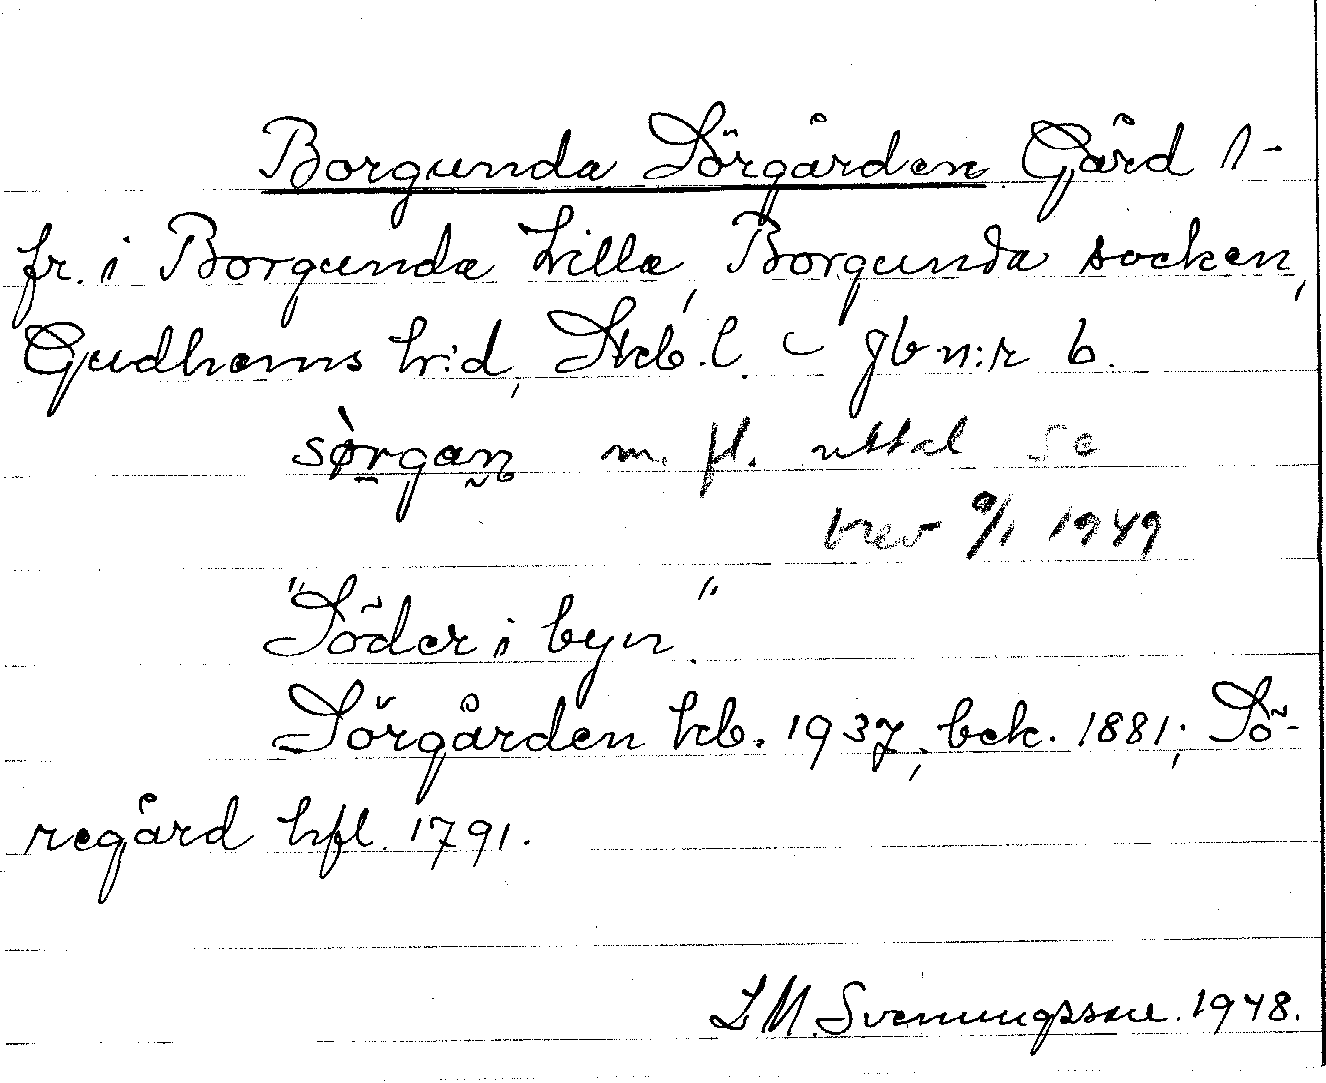 Borgunda Sörgården Gård 1-
fr. i Borgunda Lilla, Borgunda socken,
Gudhems h:d, Skb.l. – jb n:r 6.
sø̀rgan m. fl. uttal se
brev 9/1 1949
"Söder i byn."
Sörgården kb. 1937, bek. 1881; Sö-
regård hfl. 1791.
L M Svenungsson. 1948.